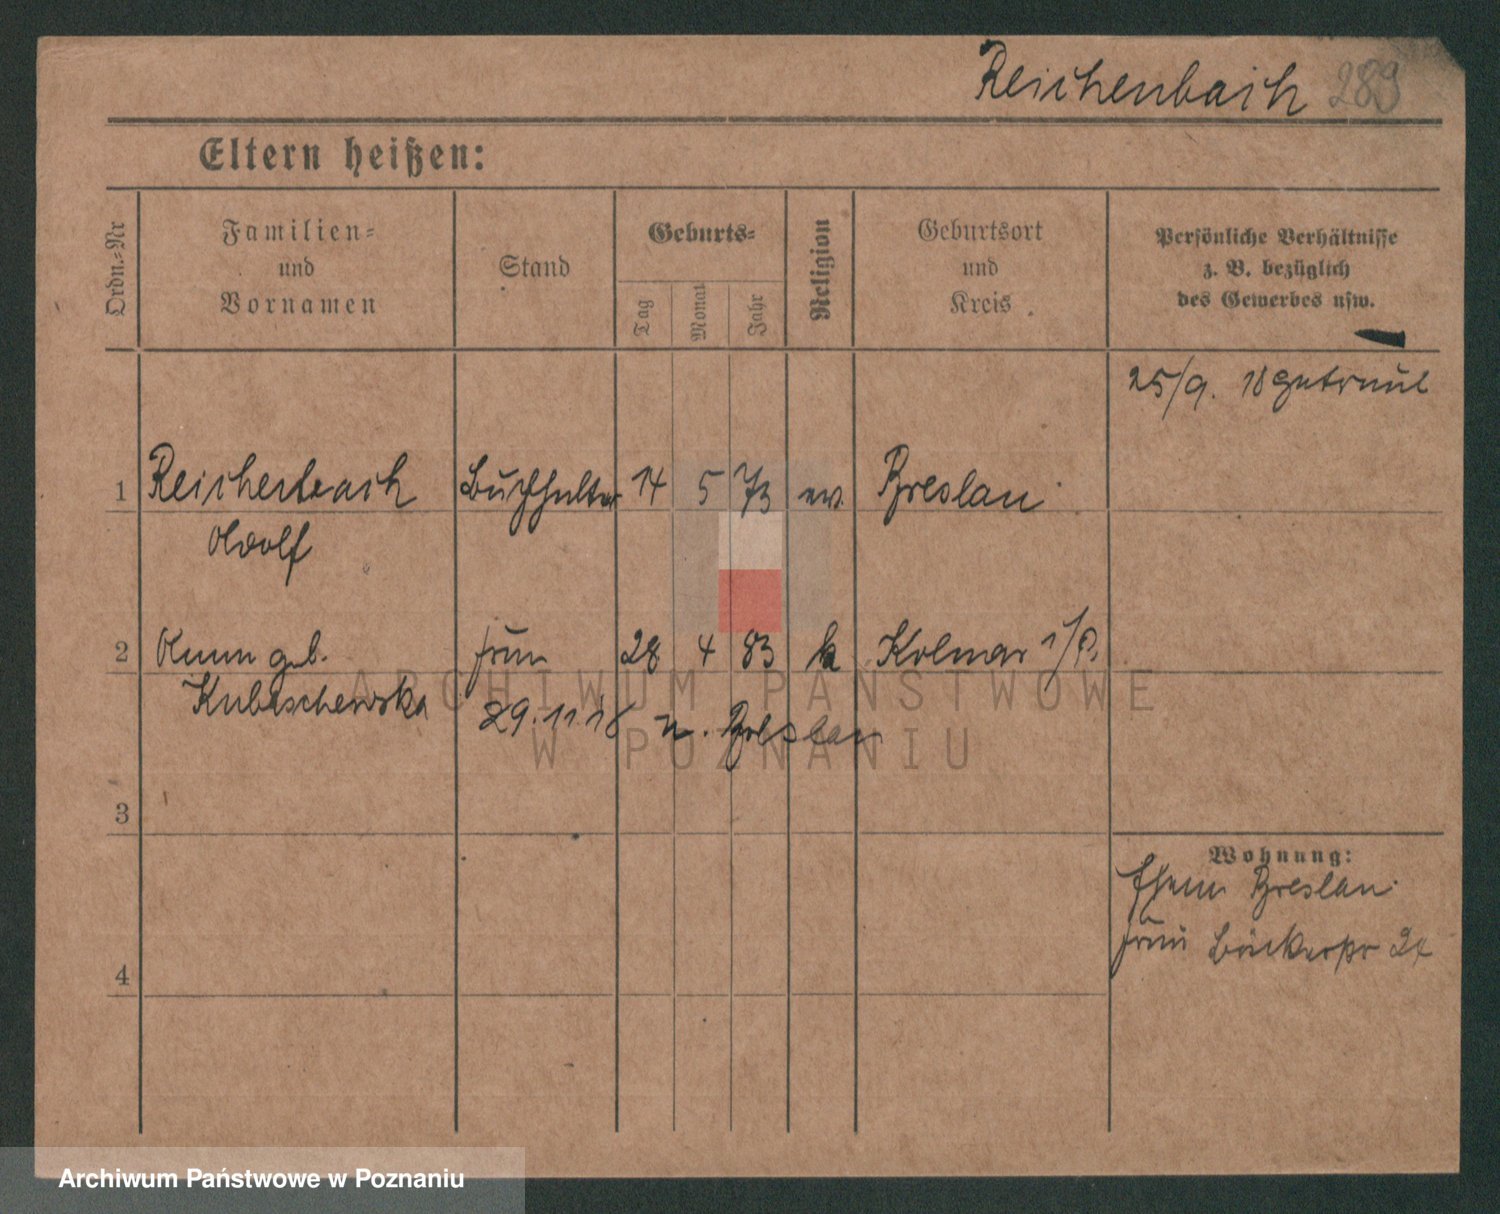 Reichenbach 289
Eltern heißen:
Ordn.-Nr
Familien-
und
Vornamen
Stand
Geburts-
Tag
Monat
Jahr
Religion
Geburtsort
und
Kreis
Persönliche Verhältnisse
z. B. bezüglich
des Gewerbes usw.
25/9. 18 getraut
1 Reichenbach Buchhalter 14 5 73 ev. Breslau
Adolf
2 Anna geb. Frau 28 4 83 k Kolmar i/P.
Kubaschewska 29.11.18 n. Breslau
3
4
Wohnung:
Ehem. Breslau
Frau Bäckerstr 24
ARCHIWUM PAŃSTWOWE
W POZNANIU
Archiwum Państwowe w Poznaniu